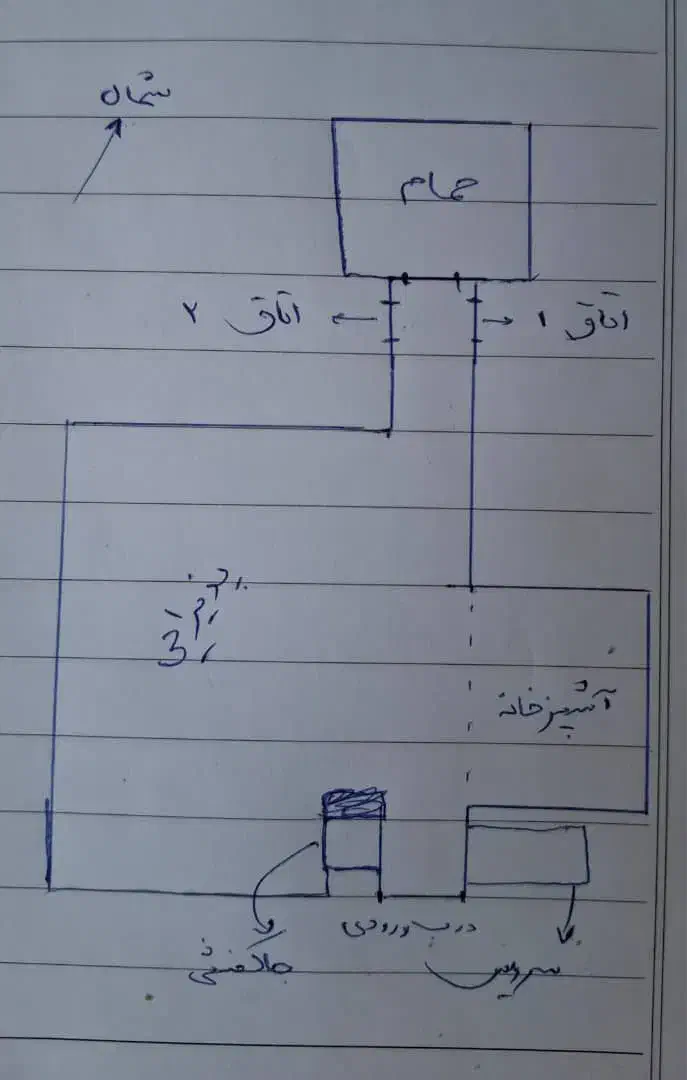 شمال
حمام
اتاق ۲
اتاق ۱
پذیرایی
آشپزخانه
درب ورودی
جاکفشی
سرویس